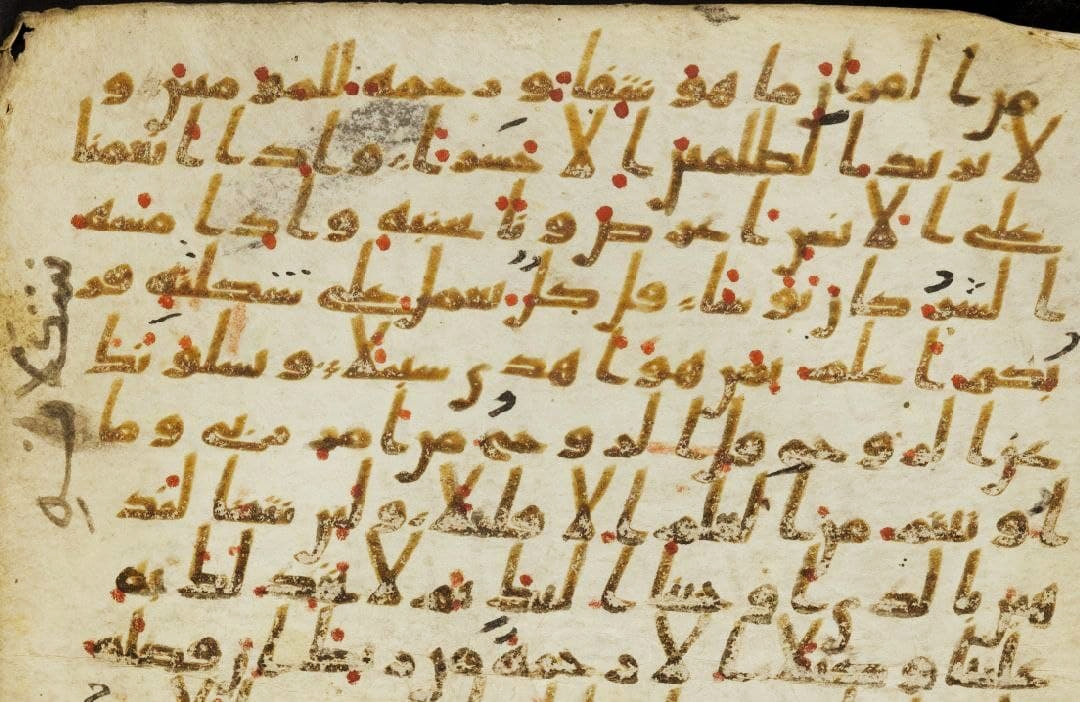 من القران ما هو شفا و رحمه للمومنين و
لا يزيد الظلمين الا خسارا واذا انعمنا
على الانسن اعرض ونا بجنبه واذا مسه
الشر كان يوسا قل كل يعمل على شكلته فر
بكم اعلم بمن هو اهدى سبيلا ويسلونك
عن الروح قل الروح من امر ربى وما
اوتيتم من العلم الا قليلا ولين شينا لنذ
هبن بالذى اوحينا اليك ثم لا تجد لك به
علينا وكيلا الا رحمه من ربك ان فضله